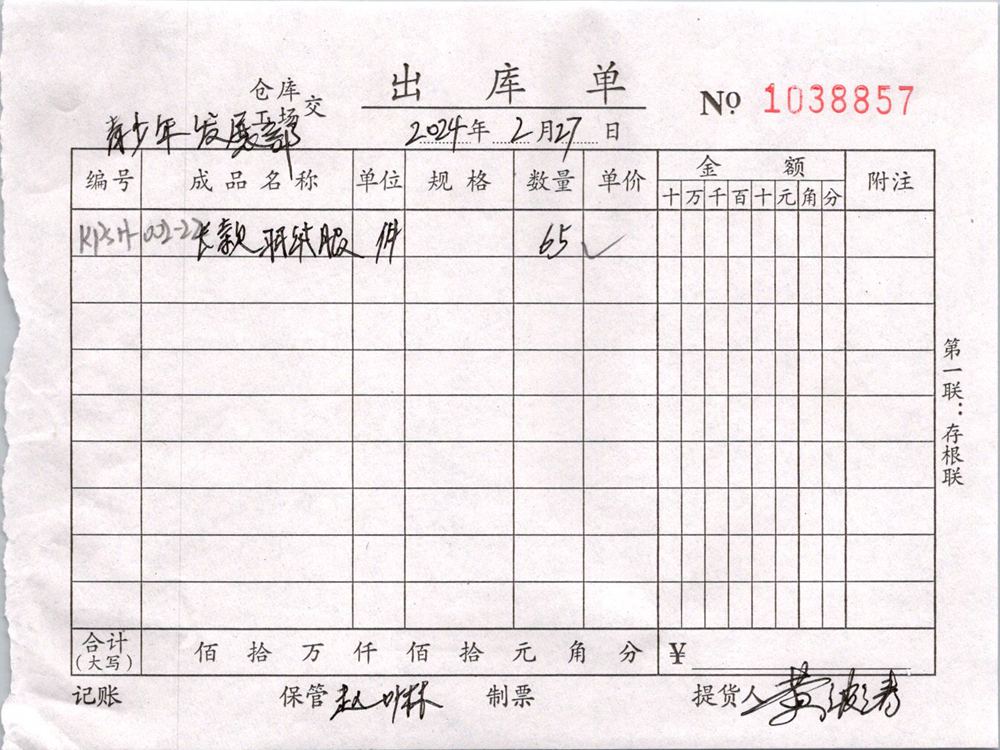 出库单
No 1038857
仓库
工场
交
青少年发展部
2024年2月27日
编号 成品名称 单位 规格 数量 单价 金额 附注
十万千百十元角分
长款羽绒服 件 65 ✓
第一联:存根联
合计(大写) 佰拾万仟佰拾元角分 ¥
记账 保管 赵 林 制票 提货人 黄 涛